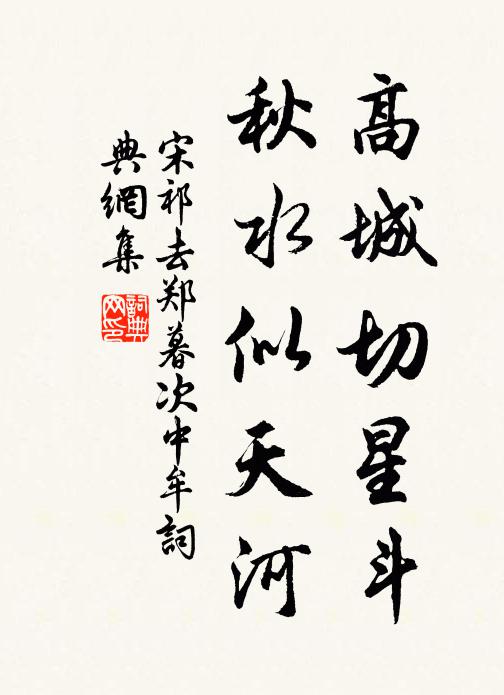 高城切星斗
秋水似天河
宋祁去郑暮次中牟詞
典網集
詞典网印